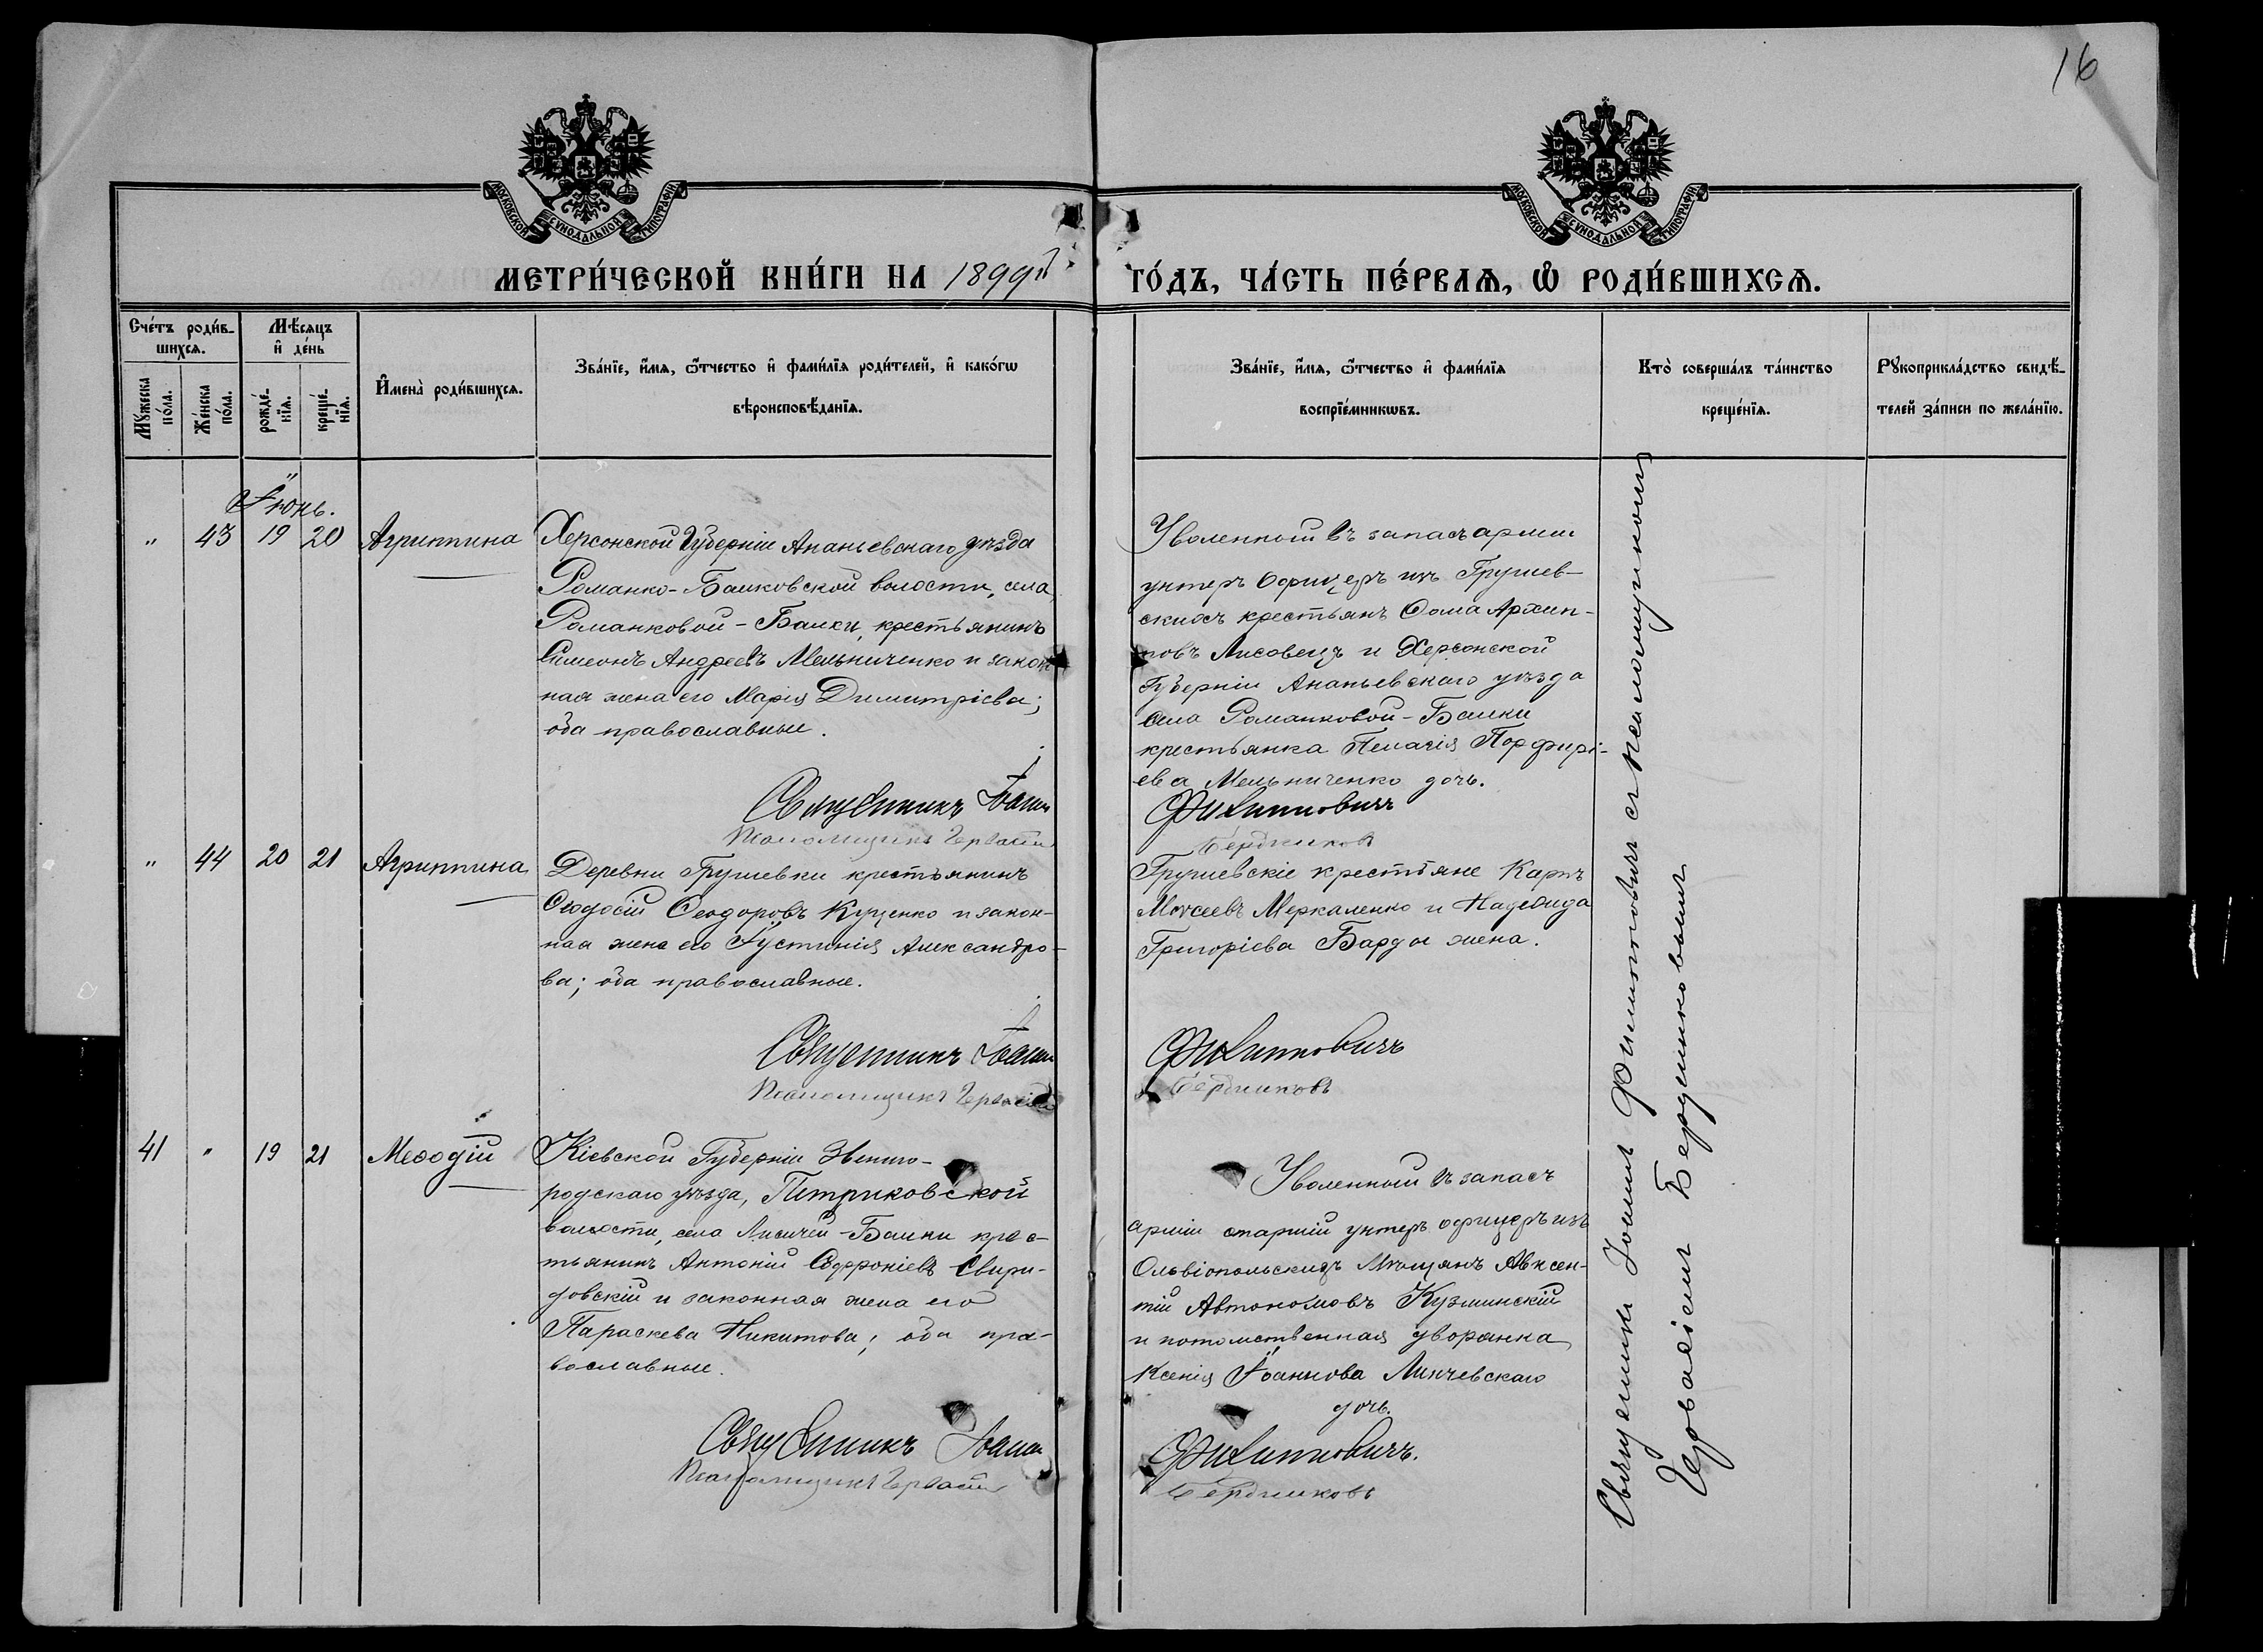 16
МОСКОВСКОЙ СУНОДАЛЬНОЙ ТИПОГРАФІИ
МОСКОВСКОЙ СУНОДАЛЬНОЙ ТИПОГРАФІИ
МЕТРИ́ЧЕСКОЙ КНИ́ГИ НА 1899й ГО́ДЪ, ЧА́СТЬ ПЕ́РВАѦ, Ѡ РОДИ́ВШИХСѦ.
Сче́тъ роди́в-
шихсѧ.
Мꙋ́жеска по́ла.
Же́нска по́ла.
Мѣ́сяцъ
и҆ де́нь
рожде́-
нїѧ.
креще́-
нїѧ.
И҆мена̀ роди́вшихсѧ.
Зва́нїе, и҆́мѧ, ѻ҆́тчество и҆ фами́лїѧ роди́телей, и҆ како́гѡ
вѣроисповѣ́данїѧ.
Зва́нїе, и҆́мѧ, ѻ҆́тчество и҆ фами́лїѧ
воспрїе́мникѡвъ.
Кто̀ соверша́лъ та́инство
креще́нїѧ.
Рꙋкоприкла́дство свидѣ́-
телей за́писи по жела́нїю.
Іюнь.
" 43 19 20 Агриппина
Херсонской Губерніи Ананьевскаго уѣзда
Романко-Балковской волости, села
Романковой-Балки, крестьянинъ
Симеонъ Андреевъ Мельниченко и закон
ная жена его Марія Димитріева;
оба православные.
Священникъ Іоаннъ
Псаломщикъ Гервасій
Уволенный въ запасъ арміи
унтеръ офицеръ изъ Грушев-
скихъ крестьянъ Ѳома Архип-
повъ Лисовецъ и Херсонской
Губерніи Ананьевскаго уѣзда
села Романковой-Балки
крестьянка Пелагія Порфирі-
ева Мельниченко дочь.
Филипповичъ
Бердниковъ
" 44 20 21 Агриппина
Деревни Грушевки крестьянинъ
Ѳеодосій Ѳеодоровъ Куценко и закон-
ная жена его Іустинія Александро-
ва; оба православные.
Священникъ Іоаннъ
Псаломщикъ Гервасій
Грушевскіе крестьяне Карпъ
Моѵсеевъ Меркаленко и Надежда
Григоріева Барды жена.
Филипповичъ
Бердниковъ
41 " 19 21 Меѳодій
Кіевской Губерніи Звениго-
родскаго уѣзда, Петриковской
волости, села Лисичей-Балки крес-
тьянинъ Антоній Софроніевъ Свири-
довскій и законная жена его
Параскева Никитова; оба пра-
вославные.
Священникъ Іоаннъ
Псаломщикъ Гервасій
Уволенный въ запасъ
арміи старшій унтеръ офицеръ изъ
Ольвіопольскихъ Мѣщанъ Авксен-
тій Автономовъ Кузминскій
и потомственная дворянка
Ксенія Іоаннова Линчевскаго
дочь.
Филипповичъ.
Бердниковъ
Священникъ Іоаннъ Филипповичъ съ псаломщикомъ
Гервасіемъ Бердниковымъ